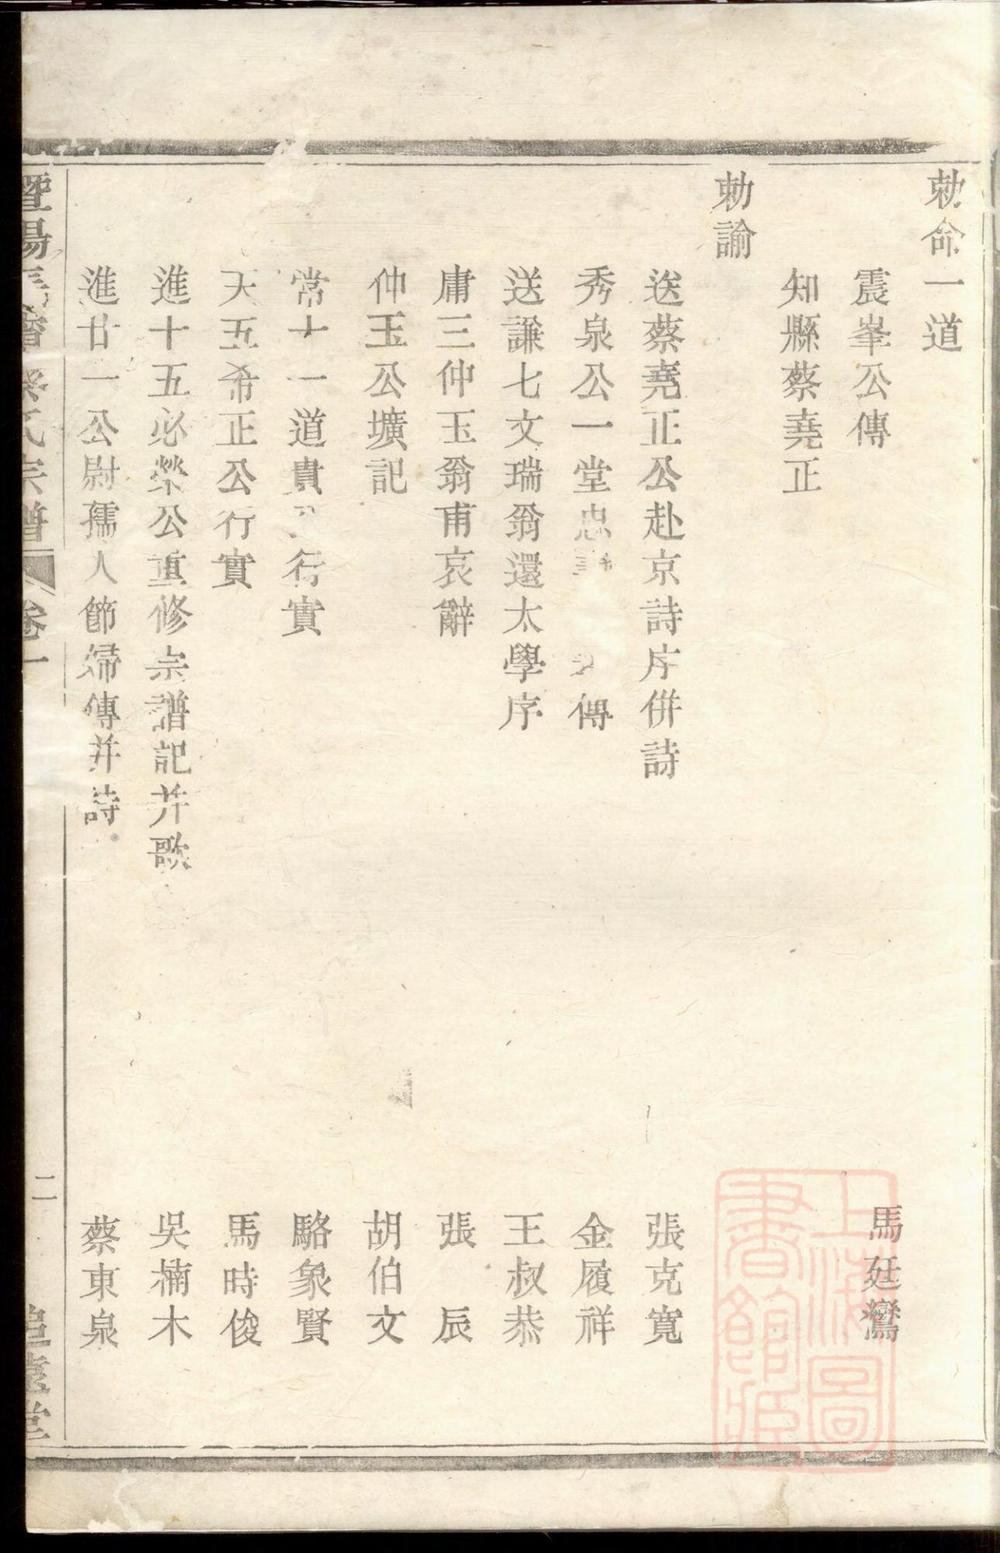 勅命一道
震峯公傳 馬廷鸞
知縣蔡堯正
勅諭
送蔡堯正公赴京詩序併詩 張克寬
秀泉公一堂忠 傳 金履祥
送謙七文瑞翁還太學序 王叔恭
庸三仲玉翁甫哀辭 張辰
仲玉公壙記 胡伯文
常十一道貴公行實 駱象賢
天五希正公行實 馬時俊
進十五必榮公重修宗譜記并歌 吳楠木
進廿一公尉孺人節婦傳并詩 蔡東泉
暨陽 蔡氏宗譜 卷一 二 追遠堂
上海圖書館藏